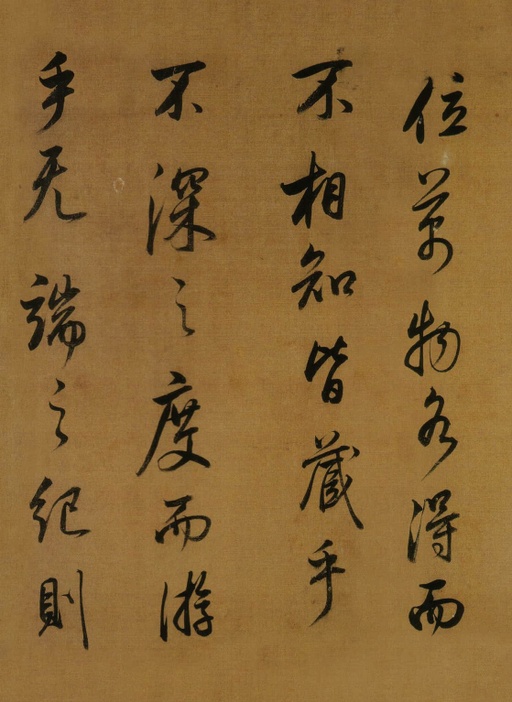 位万物各得而
不相知皆藏乎
不深之度而游
乎无端之纪则